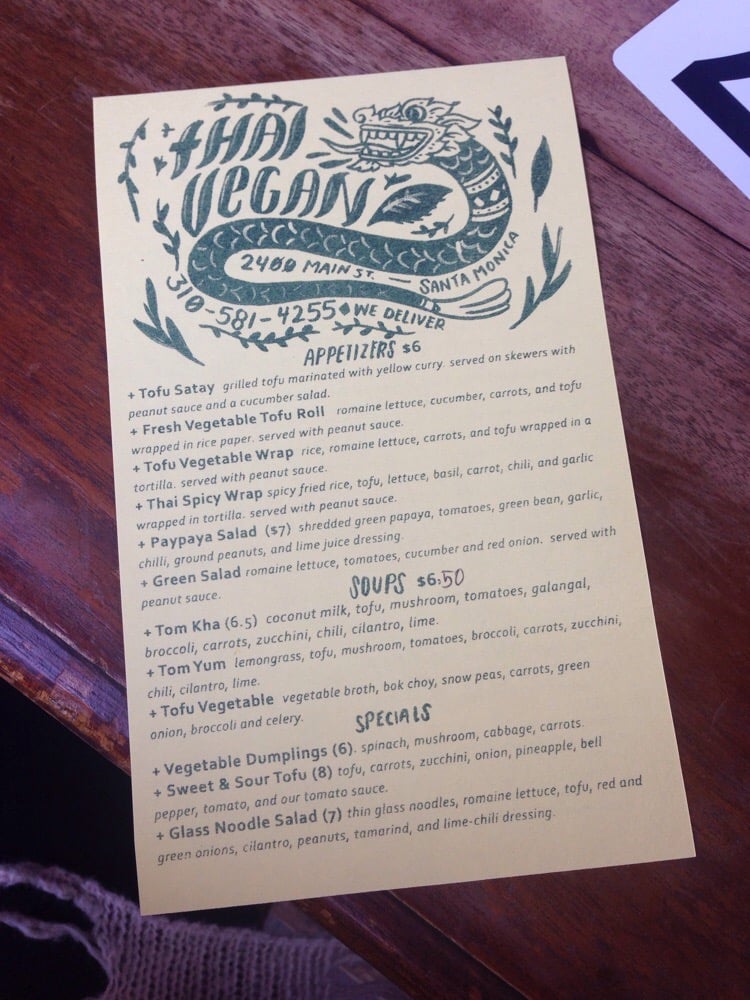 tHAI
VEGAN
2400 MAIN ST. — SANTA MONICA
310-581-4255 ♦ WE DELIVER
APPETIZERS $6
+ Tofu Satay grilled tofu marinated with yellow curry. served on skewers with
peanut sauce and a cucumber salad.
+ Fresh Vegetable Tofu Roll romaine lettuce, cucumber, carrots, and tofu
wrapped in rice paper. served with peanut sauce.
+ Tofu Vegetable Wrap rice, romaine lettuce, carrots, and tofu wrapped in a
tortilla. served with peanut sauce.
+ Thai Spicy Wrap spicy fried rice, tofu, lettuce, basil, carrot, chili, and garlic
wrapped in tortilla. served with peanut sauce.
+ Paypaya Salad ($7) shredded green papaya, tomatoes, green bean, garlic,
chilli, ground peanuts, and lime juice dressing.
+ Green Salad romaine lettuce, tomatoes, cucumber and red onion. served with
peanut sauce.
SOUPS $6.50
+ Tom Kha (6.5) coconut milk, tofu, mushroom, tomatoes, galangal,
broccoli, carrots, zucchini, chili, cilantro, lime.
+ Tom Yum lemongrass, tofu, mushroom, tomatoes, broccoli, carrots, zucchini,
chili, cilantro, lime.
+ Tofu Vegetable vegetable broth, bok choy, snow peas, carrots, green
onion, broccoli and celery.
SPECIALS
+ Vegetable Dumplings (6). spinach, mushroom, cabbage, carrots.
+ Sweet & Sour Tofu (8) tofu, carrots, zucchini, onion, pineapple, bell
pepper, tomato, and our tomato sauce.
+ Glass Noodle Salad (7) thin glass noodles, romaine lettuce, tofu, red and
green onions, cilantro, peanuts, tamarind, and lime-chili dressing.